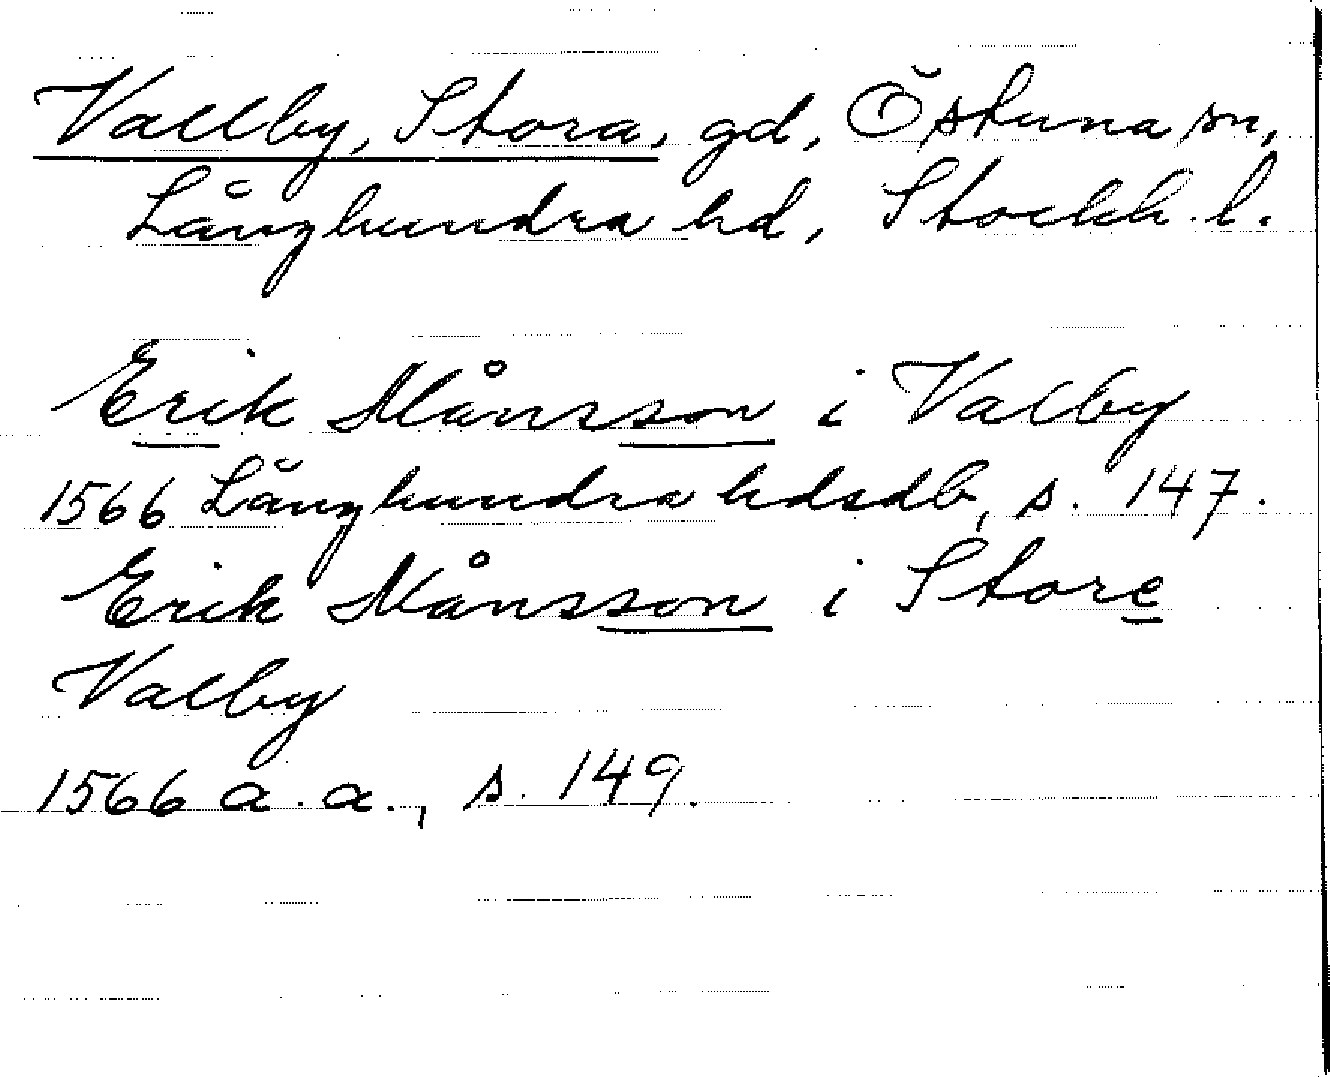 Vallby, Stora, gd, Östuna sn,
Långhundra hd, Stockh. l.
Erik Månsson i Valby
1566 Långhundra hdsdb, s. 147.
Erik Månsson i Store
Valby
1566 a. a., s. 149.